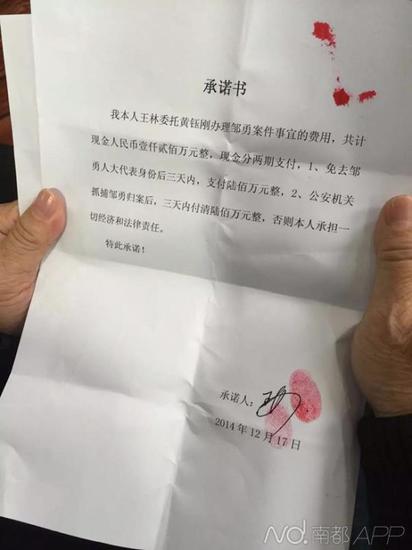 承诺书
我本人王林委托黄钰刚办理邹勇案件事宜的费用，共计
现金人民币壹仟贰佰万元整，现金分两期支付，1、免去邹
勇人大代表身份后三天内，支付陆佰万元整，2、公安机关
抓捕邹勇归案后，三天内付清陆佰万元整，否则本人承担一
切经济和法律责任。
特此承诺！
承诺人：
2014年12月17日
南都APP